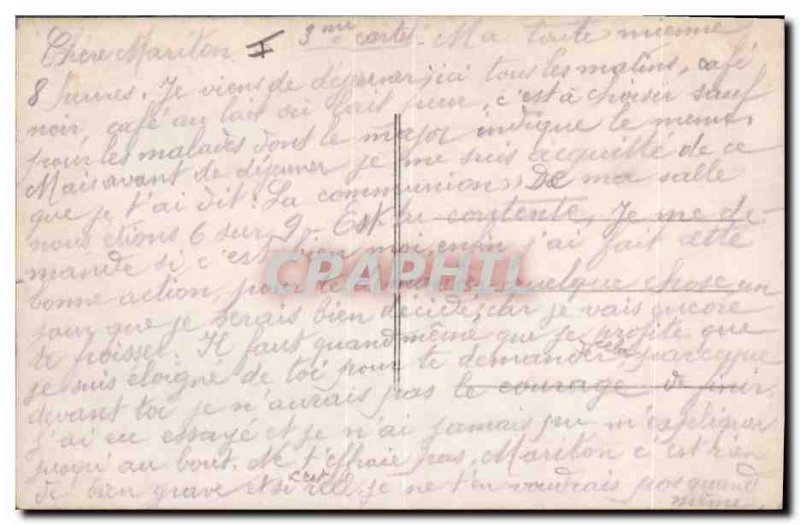 Chère Mariton I 3me carte. Ma toute mienne
8 heures. Je viens de déjeuner, ici tous les matins, café
noir, café au lait ou lait pur, c'est à choisir sauf
pour les malades dont le major indique le menu.
Mais avant de déjeuner je me suis acquitté de ce
que je t'ai dit: La communion, De ma salle
nous étions 6 sur 9. Es-tu contente, Je me de-
mande si c'est bien moi, enfin j'ai fait cette
bonne action, pour te quelque chose un
jour que je serais bien décidé, car je vais encore
te froisser. Il faut quand même que je profite que
je suis éloigné de toi pour te demander cela, parceque
devant toi je n'aurais pas le courage de finir.
J'ai eu essayé et je n'ai jamais pu m'expliquer
jusqu'au bout. Ne t'effraie pas, Mariton c'est rien
de bien grave et si c'est réel je ne t'en voudrais pas quand
même.
CPAPHIL